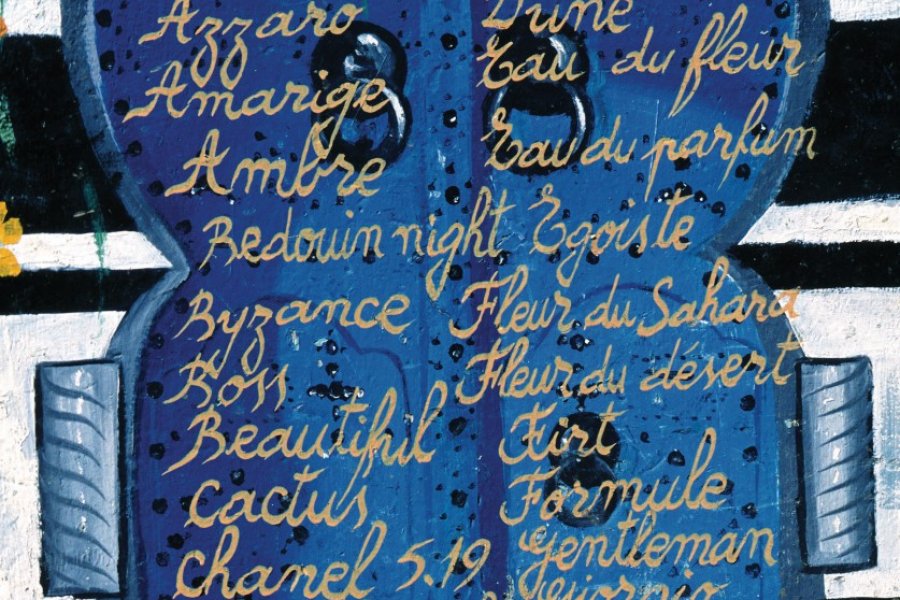 Azzaro
Amarige
Ambre
Bedouin night
Byzance
Boss
Beautiful
Cactus
Chanel 5.19
Dune
Eau du fleur
Eau du parfum
Egoiste
Fleur du Sahara
Fleur du désert
Flirt
Formule
Gentleman
Giorgio